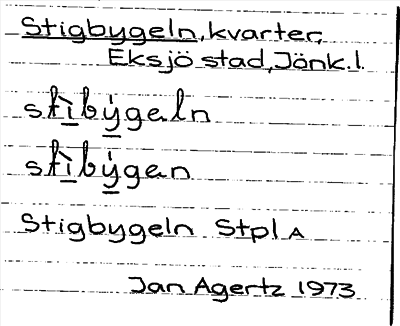 Stigbygeln, kvarter,
Eksjö stad, Jönk. l.
stìby̍geln
stìby̍gen
Stigbygeln Stpl A
Jan Agertz 1973